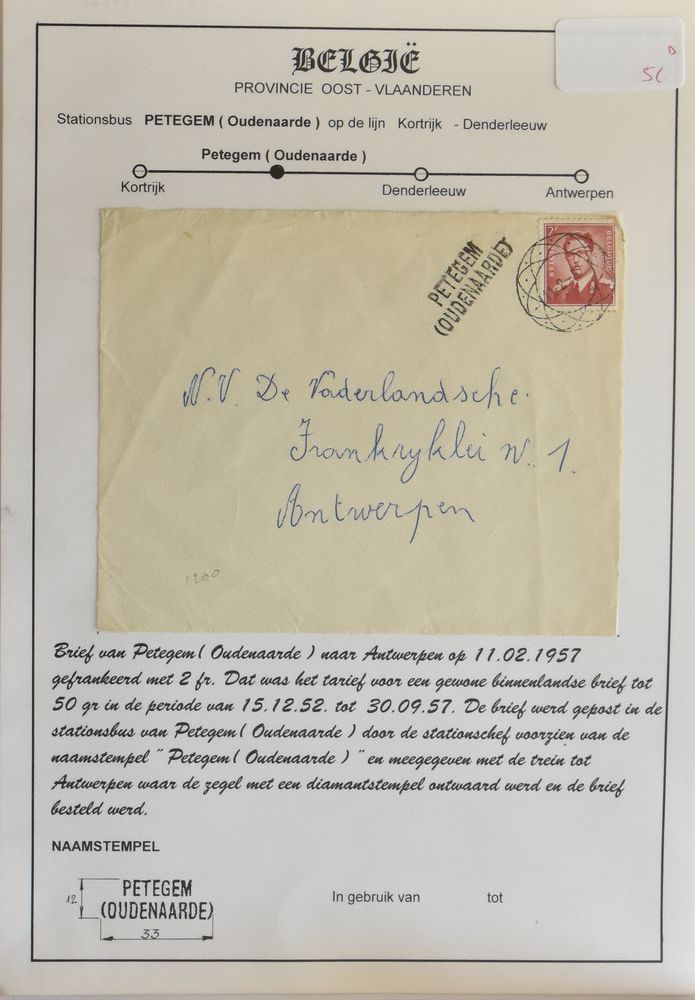 BELGIË
PROVINCIE OOST - VLAANDEREN
Stationsbus PETEGEM ( Oudenaarde ) op de lijn Kortrijk - Denderleeuw
Petegem ( Oudenaarde )
Kortrijk Denderleeuw Antwerpen
PETEGEM
(OUDENAARDE)
2F
BELGIE BELGIQUE
N.V. De Vaderlandsche.
Frankryklei N. 1.
Antwerpen
1200
Brief van Petegem ( Oudenaarde ) naar Antwerpen op 11.02.1957
gefrankeerd met 2 fr. Dat was het tarief voor een gewone binnenlandse brief tot
50 gr in de periode van 15.12.52. tot 30.09.57. De brief werd gepost in de
stationsbus van Petegem ( Oudenaarde ) door de stationschef voorzien van de
naamstempel " Petegem ( Oudenaarde ) " en meegegeven met de trein tot
Antwerpen waar de zegel met een diamantstempel ontwaard werd en de brief
besteld werd.
NAAMSTEMPEL
12 PETEGEM
(OUDENAARDE)
33
In gebruik van tot